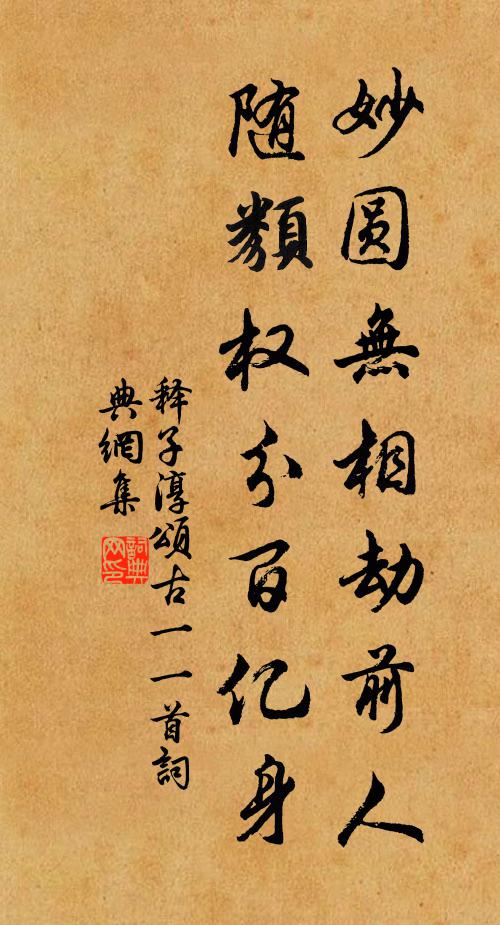 妙圆無相劫前人
随類权分百亿身
释子淳頌古一一首詞
典網集
詞典網印